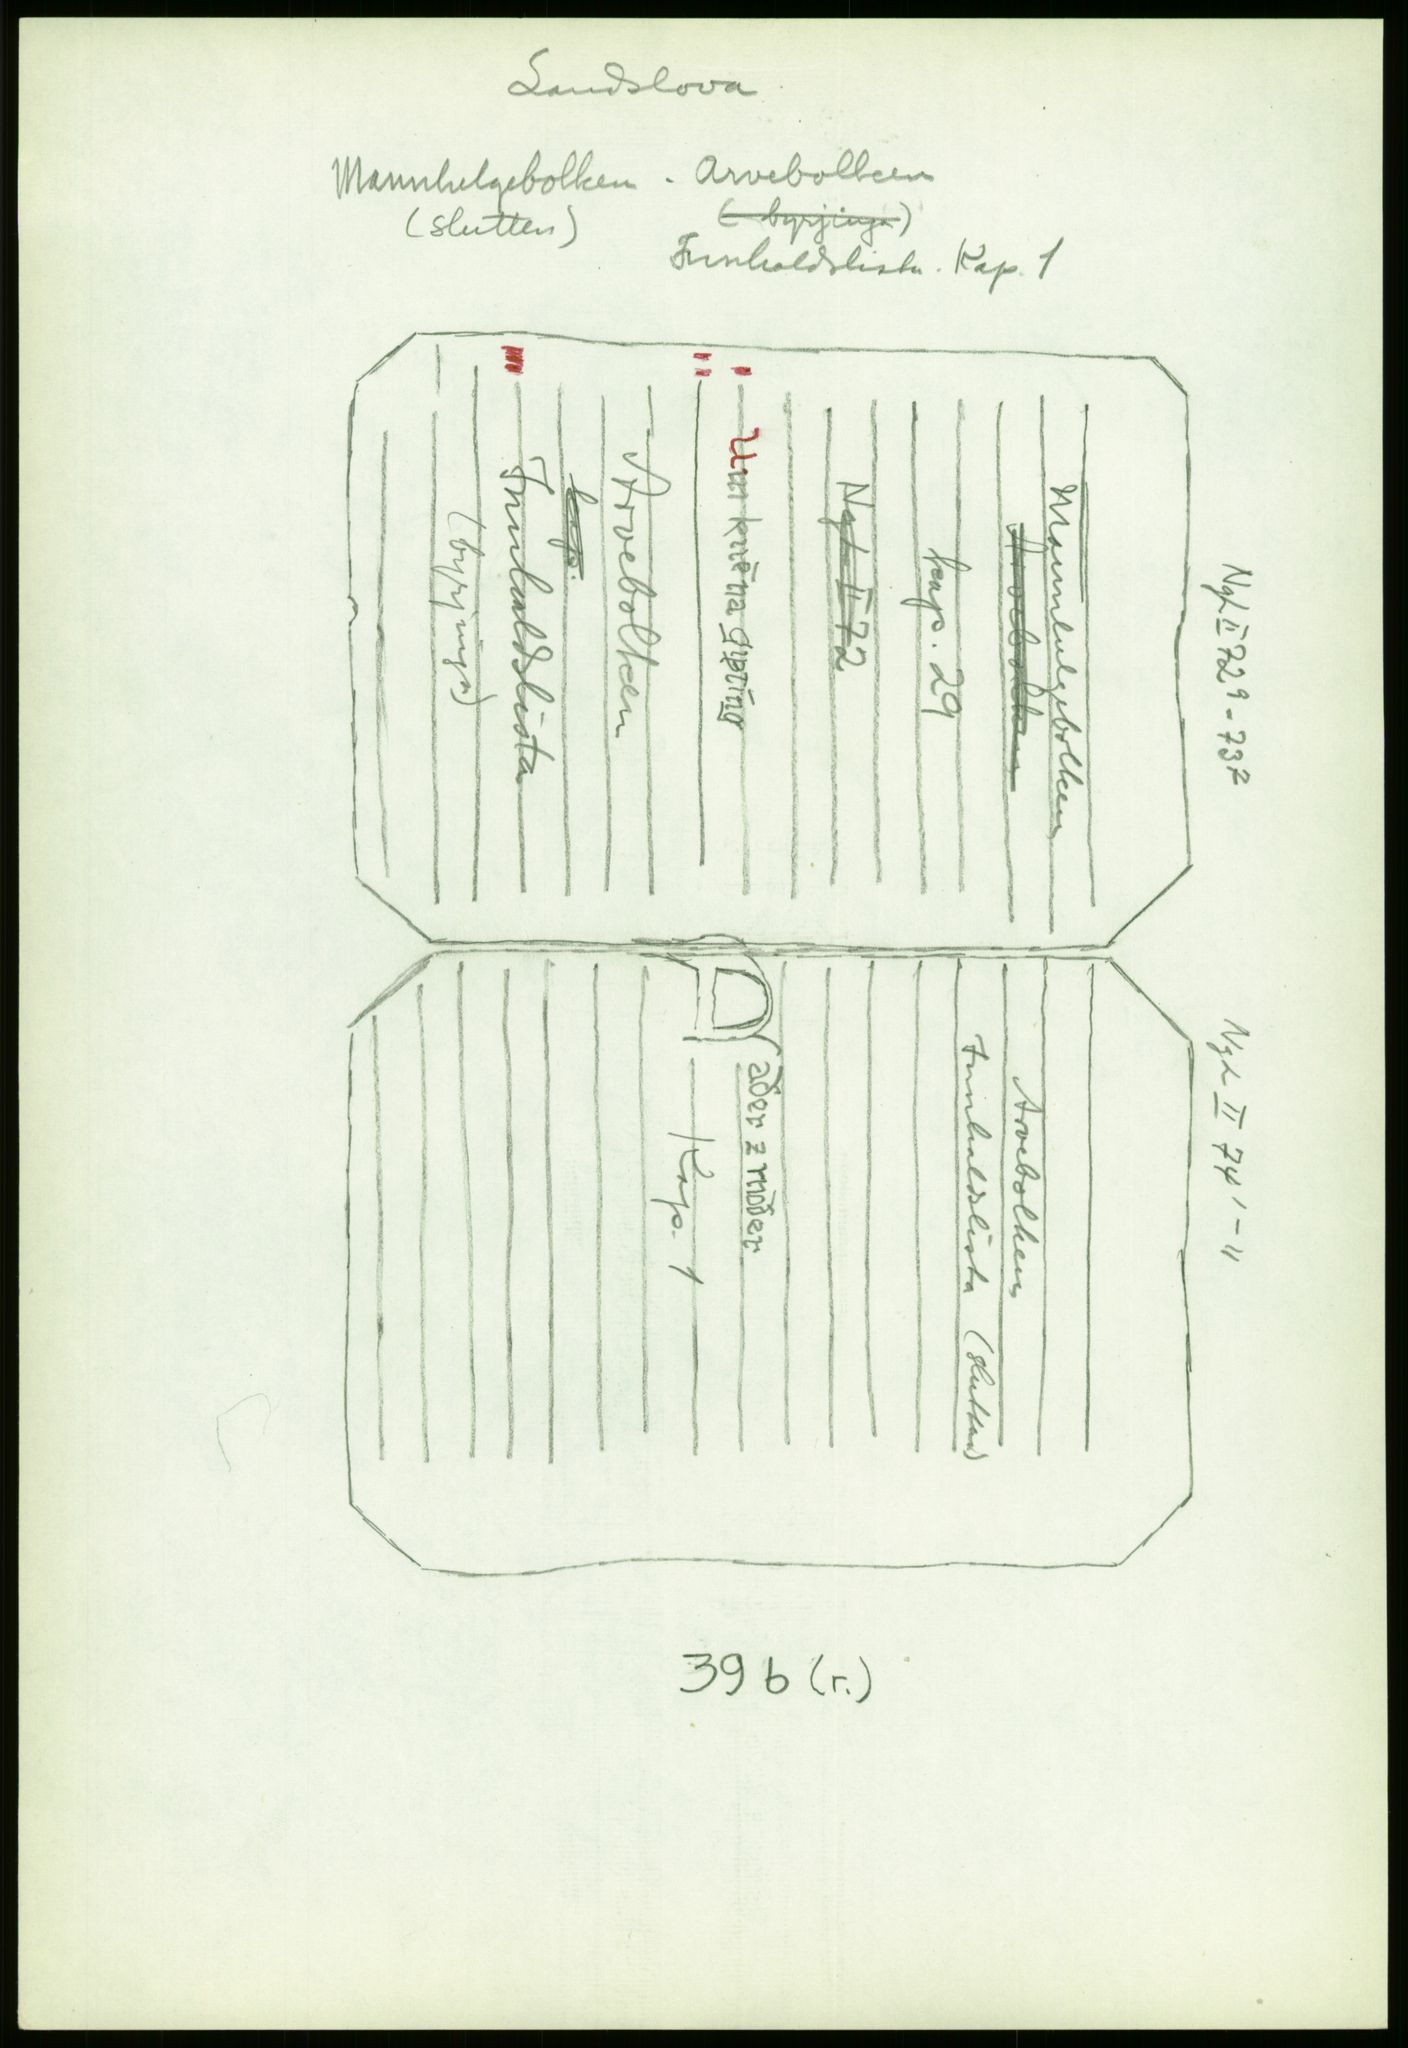 Landslova
Mannhelgebolken - Arvebolken
(slutten) (byrjinga)
Innhaldslista. Kap. 1
NgL II 72⁹-73²
Mannhelgebolken
Arvebolken
kap. 29
NgL II 72
Um kuēna gipting
Arvebolken
kap.
Innhaldslista
(byrjinga)
NgL II 74¹-¹¹
Arvebolken
Innhaldslista (slutten)
aðer z móðer
Kap. 1
39 b (r.)